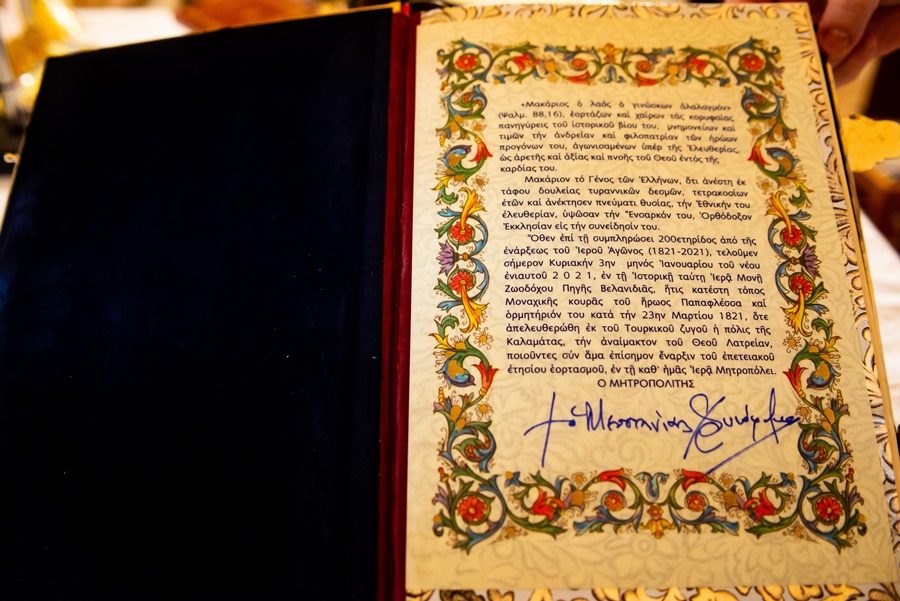 «Μακάριος ὁ λαός ὁ γινώσκων ἀλαλαγμόν»
(Ψαλμ. 88,16), ἑορτάζων καί χαίρων τάς κορυφαίας
πανηγύρεις τοῦ ἱστορικοῦ βίου του, μνημονεύων καί
τιμῶν τήν ἀνδρείαν καί φιλοπατρίαν τῶν ἡρώων
προγόνων του, ἀγωνισαμένων ὑπέρ τῆς Ἐλευθερίας,
ὡς ἀρετῆς καί ἀξίας καί πνοῆς τοῦ Θεοῦ ἐντός τῆς
καρδίας του.
Μακάριον τό Γένος τῶν Ἑλλήνων, ὅτι ἀνέστη ἐκ
τάφου δουλείας τυραννικῶν δεσμῶν, τετρακοσίων
ἐτῶν καί ἀνέκτησεν πνεύματι θυσίας, τήν Ἐθνικήν του
ἐλευθερίαν, ὑψῶσαν τήν Ἔνσαρκόν του, Ὀρθόδοξον
Ἐκκλησίαν εἰς τήν συνείδησίν του.
Ὅθεν ἐπί τῇ συμπληρώσει 200ετηρίδος ἀπό τῆς
ἐνάρξεως τοῦ Ἱεροῦ Ἀγῶνος (1821-2021), τελοῦμεν
σήμερον Κυριακήν 3ην μηνός Ἰανουαρίου τοῦ νέου
ἐνιαυτοῦ 2 0 2 1, ἐν τῇ Ἱστορικῇ ταύτῃ Ἱερᾷ Μονῇ
Ζωοδόχου Πηγῆς Βελανιδιᾶς, ἥτις κατέστη τόπος
Μοναχικῆς κουρᾶς τοῦ ἥρωος Παπαφλέσσα καί
ὁρμητήριόν του κατά τήν 23ην Μαρτίου 1821, ὅτε
ἀπελευθερώθη ἐκ τοῦ Τουρκικοῦ ζυγοῦ ἡ πόλις τῆς
Καλαμάτας, τήν ἀναίμακτον τοῦ Θεοῦ Λατρείαν,
ποιοῦντες σύν ἅμα ἐπίσημον ἔναρξιν τοῦ ἐπετειακοῦ
ἐτησίου ἑορτασμοῦ, ἐν τῇ καθ' ἡμᾶς Ἱερᾷ Μητροπόλει.
Ο ΜΗΤΡΟΠΟΛΙΤΗΣ
ὁ Μεσσηνίας